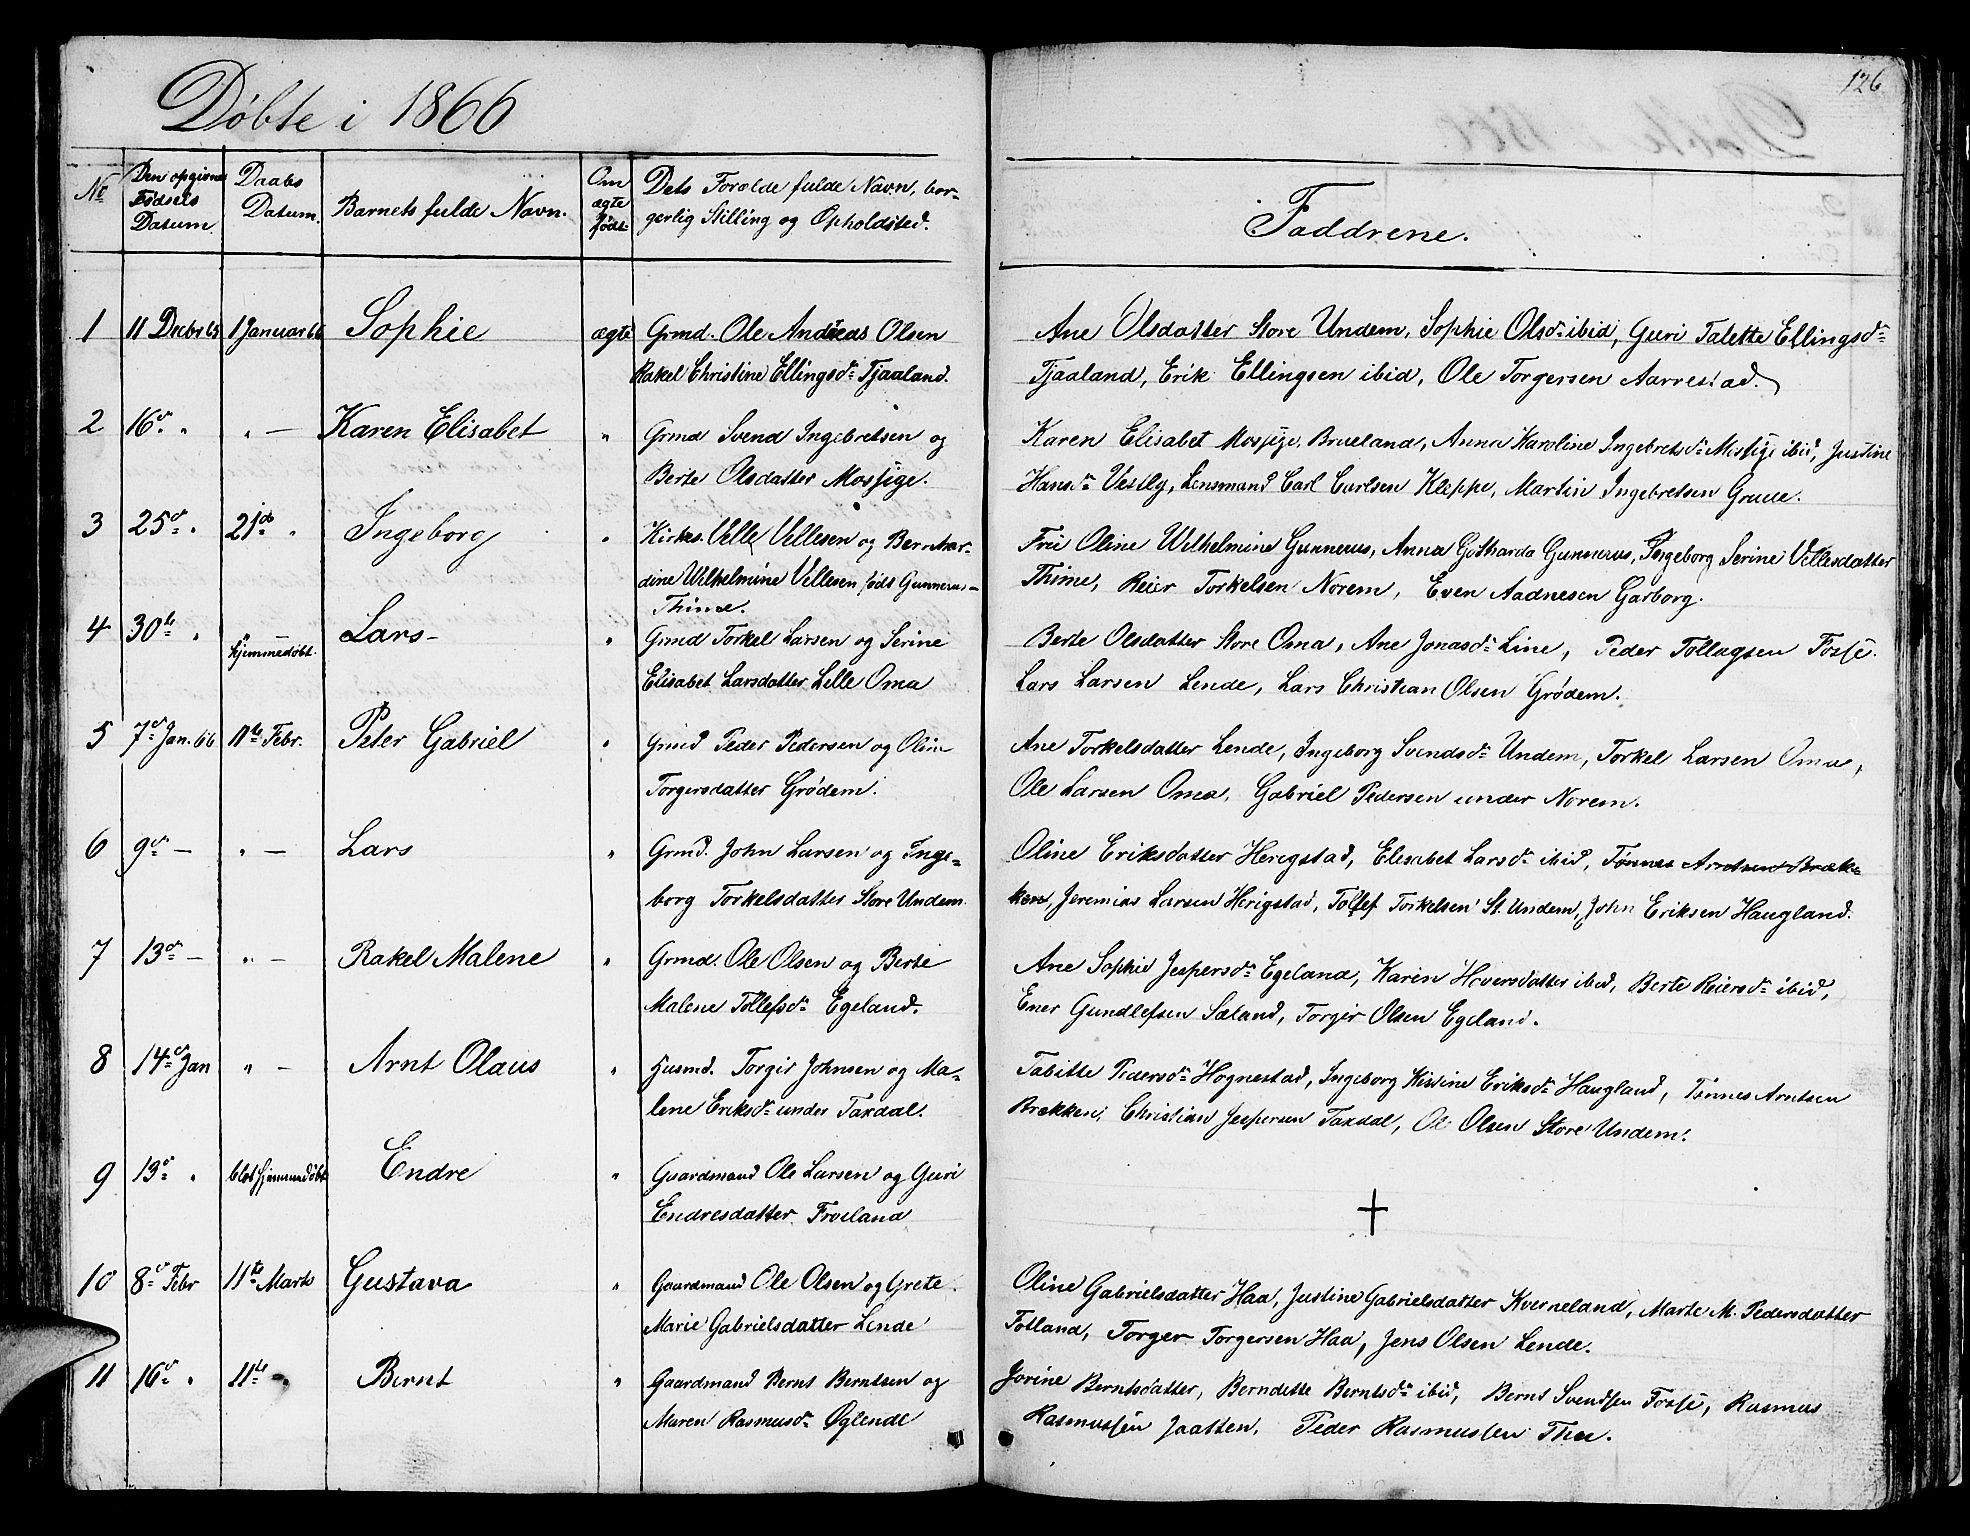 126
Døbte i 1866
No
Den opgivne Fødsels Datum
Daabs Datum.
Barnets fulde Navn.
Om ægte født
Dets Forældre fulde Navn, borgerlig Stilling og Opholdsted.
Faddrene.
1 11 Decbr 65 1 Januar 66 Sophie ægte Grmd. Ole Andreas Olsen
Rakel Christine Ellingsdr Tjaaland.
Ane Olsdatter Store Undem, Sophie Olsdr ibid, Guri Talette Ellingsdr
Tjaaland, Erik Ellingsen ibid, Ole Torgersen Aarrestad.
2 16de " " — Karen Elisabet " Grmd Svend Ingebretsen og
Berte Olsdatter Mossige.
Karen Elisabet Mossige, Brueland, Anna Karoline Ingebretsdr Mossige ibid, Justine
Hansdr Vestly, Lensmand Carl Carlsen Kleppe, Martin Ingebretsen Grude.
3 25de " 21de " Ingeborg " Kirkes. Velle Vellesen og Bernhar-
dine Wilhelmine Vellesen født Gunnerus –
Thime.
Fru Oline Wilhelmine Gunnerus, Anna Gotharda Gunnerus, Ingeborg Serine Vellesdatter
Thime, Reier Torkelsen Norem, Even Aadnesen Garborg.
4 30te " hjemmedøbt. Lars – " Grmd Torkel Larsen og Serine
Elisabet Larsdatter Lille Oma
Berte Olsdatter Store Oma, Ane Jonasdr Line, Peder Tollagsen Fosse.
Lars Larsen Lende, Lars Christian Olsen Grødem.
5 7de Jan. 66 11te Febr. Peter Gabriel " Grmd Peder Pedersen og Olin
Torgersdatter Grødem.
Ane Torkelsdatter Lende, Ingeborg Svendsdr Undem, Torkel Larsen Oma,
Ole Larsen Oma, Gabriel Pedersen under Norem.
6 9de — " — Lars " Grmd. John Larsen og Inge-
borg Torkelsdatter Store Undem.
Oline Eriksdatter Herigstad, Elisabet Larsdr ibid, Tønnes Arntsen Bræk-
ken, Jeremias Larsen Herigstad, Tollef Torkelsen St. Undem, John Eriksen Haugland.
7 13de — " — Rakel Malene " Grmd. Ole Olsen og Berte
Malene Tollefsdr Egeland.
Ane Sophie Jespersdr Egeland, Karen Hoversdatter ibid, Berte Reiersdr ibid,
Ener Gundlefsen Sæland, Torger Olsen Egeland.
8 14de Jan " — Arnt Olaus " Husmd. Torgir Johnsen og Ma-
lene Eriksdr under Taxdal.
Tabitte Pedersdr Hognestad, Ingeborg Kistine Eriksdr Haugland, Tønnes Arntsen
Brækken, Christian Jespersen Taxdal, Ole Olsen Store Undem.
9 13de " blot hjemmedøbt Endre " Gaardmand Ole Larsen og Guri
Endresdatter Frøiland
+
10 8de Febr 11te Marts Gustava " Gaardmand Ole Olsen og Grete
Marie Gabrielsdatter Lende
Oline Gabrielsdatter Haa, Justine Gabrielsdatter Kverneland, Marte M. Pedersdatter
Folland, Torger Torgersen Haa, Jens Olsen Lende.
11 16de " 11te " Bernt " Gaardmand Bernt Berntsen og
Maren Rasmusdr Øglende
Jorine Berntsdatter, Berndette Berntsdr ibid, Bernt Svendsen Fosse, Rasmus
Rasmussen Jaatten, Peder Rasmussen Thu.